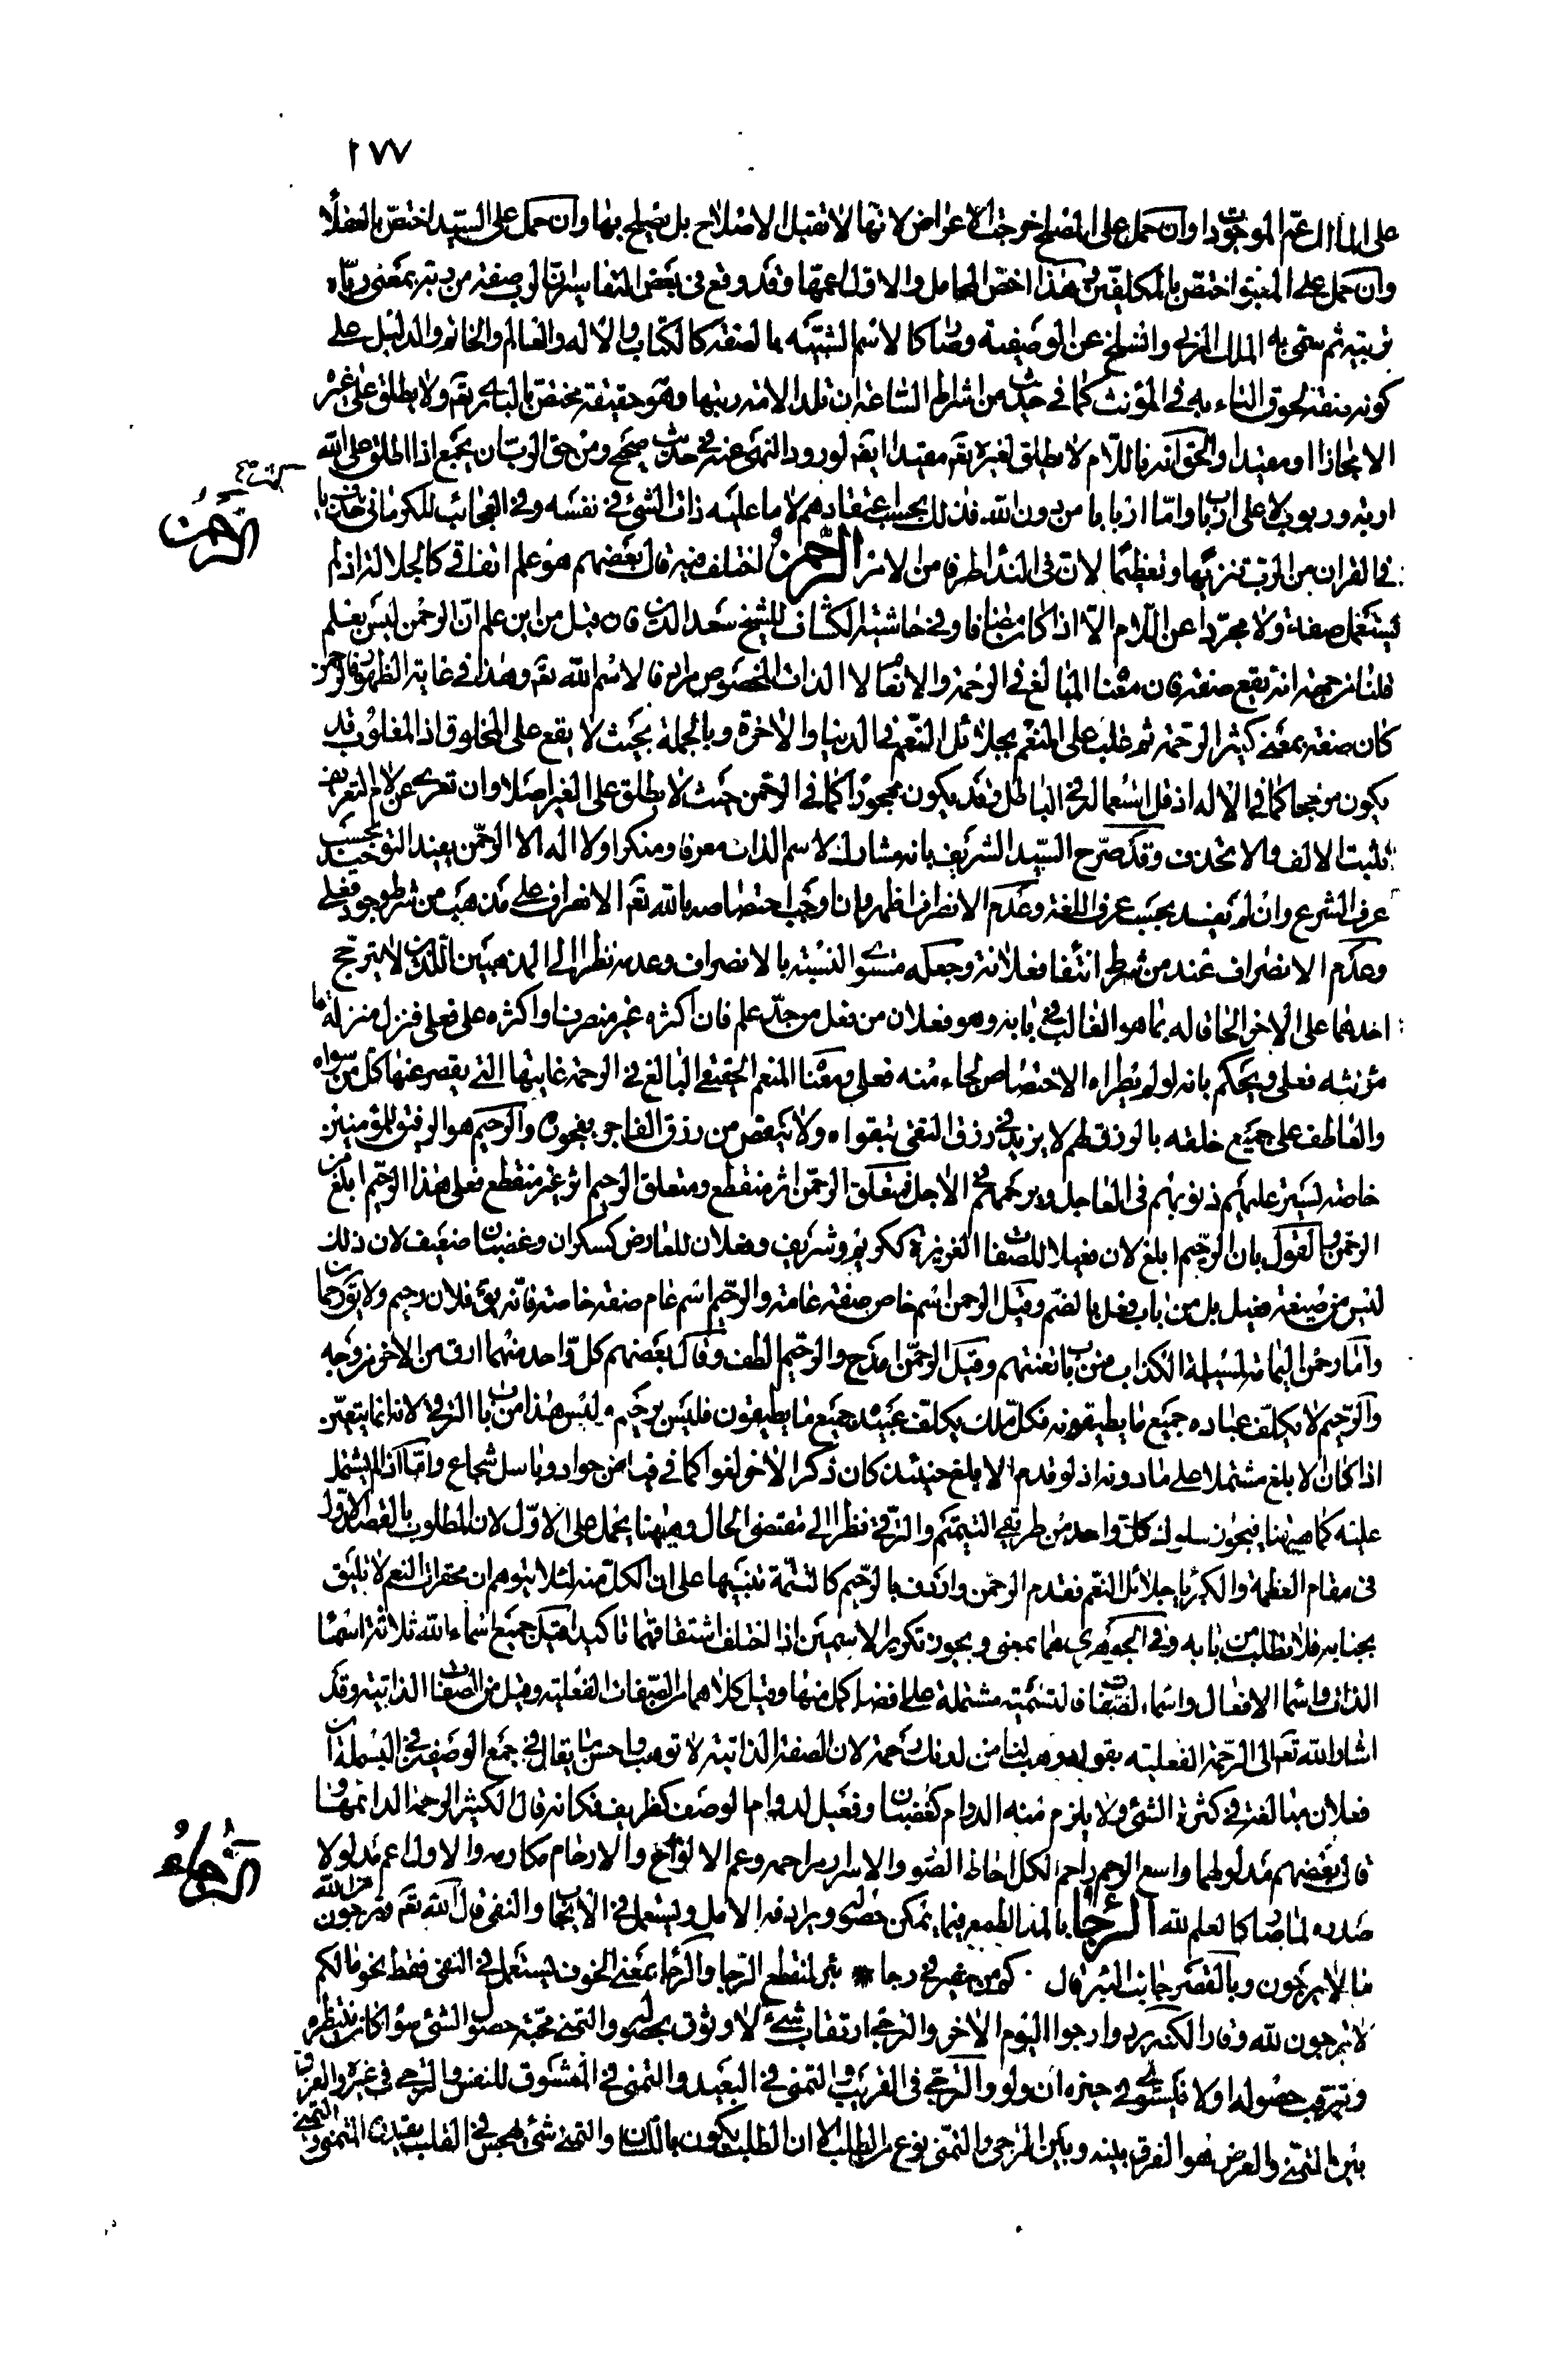 ١٧٧
على المالك عمّ الموجودات وان حمل على المصلح خرجت الاعراض لانها لا تقبل الاصلاح بل يصلح بها وان حمل على السيد اختص بالعقلاء
وان حمل على المعبود اختص بالمكلفين وهذا اخص المحامل والاول اعمها وقد وقع في بعض التفاسير ان الرب صفة من ربه بمعنى رباه
تربية ثم سمى به الملك المربي وانسلخ عن الوصفية وصار كالاسم لشبهه بالصفة كالكتاب والاله والعالم والخاتم والدليل على
كونه صفة لحوق التاء به في المؤنث كما في حديث من اشراط الساعة ان تلد الامة ربتها وهو حقيقة مختص بالباري تعم ولا يطلق على غيره
الا مجازا او مقيدا والحق انه باللام لا يطلق لغيره تعم مقيدا ايضا لورود النهى عنه في حديث صحيح ومن حق الرب ان يجمع اذا اطلق على الله
اربة وربوب لا على ارباب واما اربابا من دون الله فذلك بحسب اعتقادهم لا ما عليه ذات الشئ في نفسه وفي العجائب للكرماني حذف يا
في القران من الرب تنزيها وتعظيما لان في الندا طرفا من الامر الرحمن اختلف فيه قال بعضهم هو علم اتفاقي كالجلالة اذ لم
يستعمل صفة ولا مجردا عن اللام الا اذا كان مضافا وفي حاشية الكشاف للشيخ سعد الدين فان قيل من اين علم ان الرحمن ليس بعلم
قلنا من جهة انه يقع صفة فان معناه المبالغ في الرحمة والانعام لا الذات المخصوص مرادفا لاسم الله تعم وهذا في غاية الظهور فالرحمن
كان صفة بمعنى كثير الرحمة ثم غلب على المنعم بجلائل النعم في الدنيا والاخرة وبالجملة بحيث لا يقع على المخلوق اذ المغلوب قد
يكون مرجحا كما في الاله اذ قل استعماله في الباطل وقد يكون مهجورا كما في الرحمن حيث لا يطلق على الغير اصلا وان تعرى عن لام التعريف
تثبت الالف والا تحذف وقد صرح السيد الشريف بانه مشارك لاسم الذات معرفا ومنكرا ولا اله الا الرحمن يفيد التوحيد بحسب
عرف الشرع وان لم يفيد بحسب عرف اللغة وعدم الانصراف اظهر وان اوجب اختصاصه بالله تعم الانصراف على مذهب من شرط وجود فعلى
وعدم الانصراف عند من شرط انتفا فعلانة وجعله مستوى النسبة بالانصراف وعدمه نظرا الى المذهبين اللذين لا يترجح
احدهما على الاخر الحاقا له بما هو الغالب في بابه وهو فعلان من فعل من حد علم فان اكثره غير منصرف او اكثره على فعلى فنزل منزلة ما
مؤنثه فعلى ويحكم بانه لو لم يطراه الاختصاص لجاء منه فعلى ومعنا المنعم الحقيقي البالغ في الرحمة غايتها التي يقصر عنها كل من سواه
والعاطف على جميع خلقه بالرزق لهم لا يزيد في رزق التقى بتقواه ولا ينقص من رزق الفاجر بفجوره والرحيم هو الرفيق للمؤمنين
خاصة يستر عليهم ذنوبهم في العاجل ويرحمهم في الاجل فمتعلق الرحمن اثر منقطع ومتعلق الرحيم اثر غير منقطع فعلى هذا الرحيم ابلغ من
الرحمن والقول بان الرحيم ابلغ لان فعيلا للصفات الغريزة ككريم وشريف وفعلان للعارض كسكران وغضبان ضعيف لان ذلك
ليس من صيغة فعيل بل من باب فعل بالضم وقيل الرحمن اسم خاص صفة عامة والرحيم اسم عام صفة خاصة فانه يق فلان رحيم ولا يق رحمان
واما رحمن اليمامة لمسيلمة الكذاب فمن باب تعنتهم وقيل الرحمن امدح والرحيم الطف وقال بعضهم كل واحد منهما ارق من الاخر من وجه
والرحيم لا يكلف عباده جميع ما يطيقونه فكل ملك يكلف عبيده جميع ما يطيقون فليس برحيم وليس هذا من باب الترقي لانه انما يتعين
اذا كان الابلغ مشتملا على ما دونه اذ لو قدم الابلغ حينئذ كان ذكر الاخر لغوا كما في فياض جواد وباسل شجاع واما اذا لم يشتمل
عليه كما ههنا فيجوز سلوك كل واحد من طريقي التتميم والترقي نظرا الى مقتضى الحال وههنا يحمل على الاول لان المطلوب بالقصد الاول
في مقام العظمة والكبريا جلائل النعم فقدم الرحمن واردف بالرحيم كالتتمة تنبيها على ان الكل منه لئلا يتوهم ان محقرات النعم لا تليق
بجنابه فلا تطلب من بابه وفي الجوهري هما بمعنى ويجوز تكرير الاسمين اذا اختلف اشتقاقهما تاكيدا قيل جميع اسماء الله ثلاثة اسما
الذات واسما الافعال واسماء الصفات فالتسمية مشتملة على افضل كل منها وقيل كلاهما من الصفات الفعلية وقيل من الصفات الذاتية وقد
اشار الله تعم الى الرحمة الفعلية بقوله وهب لنا من لدنك رحمة لان الصفة الذاتية لا توهب واحسن ما يقال في جمع الوصفين في البسملة ان
فعلان مبالغة في كثرة الشئ ولا يلزم منه الدوام كغضبان وفعيل لدوام الوصف كظريف فكانه قال الكثير الرحمة الدائمها
قال بعضهم مدلولهما واسع الرحم راحم لكل احاط الصور والاسرار مراحمه وعم الالواح والارحام مكارمه والاول اعم مدلولا
صدره لما صار كالعلم لله الرجاء بالمد الطمع فيما يمكن حصوله ويرادفه الامل ويستعمل في الايجاب والنفي قال الله تعم وترجون من الله
ما لا يرجون وبالقصر جانب البئر قال كم من حفير في رجا * بئر لمنقطع الرجا والرجا بمعنى الخوف يستعمل في النفي فقط نحو مالكم
لا ترجون لله وقارا لكنه يرد وارجوا اليوم الاخر والترجي ارتقاب شئ لا وثوق بحصوله والتمني محبة حصول الشئ سواء كان ينتظره
ويترقب حصوله او لا فيستوي في حيزه ان ولو والترجي في القريب والتمني في البعيد والتمني في المعشوق للنفس والترجي في غيره والفرق
بين التمني والعرض هو الفرق بينه وبين الترجي والتمني نوع من الطلب الا ان الطلب يكون باللسان والتمني شئ يهجس في القلب يقدره المتمني
الرحمن
الرجاء